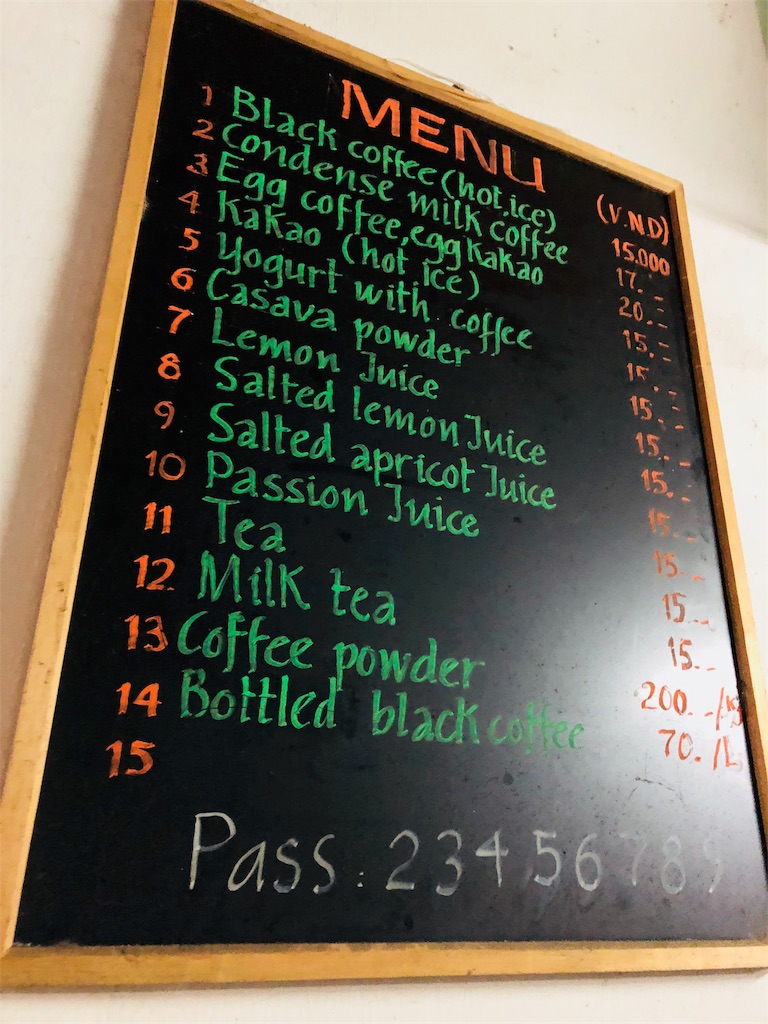 MENU
(V.N.D)
1 Black coffee (hot, ice) 15.000
2 Condense milk coffee 17.-
3 Egg coffee, egg kakao 20.-
4 Kakao (hot ice) 15.-
5 Yogurt with coffee 15.-
6 Casava powder 15.-
7 Lemon Juice 15.-
8 Salted lemon Juice 15.-
9 Salted apricot Juice 15.-
10 Passion Juice 15.-
11 Tea 15.-
12 Milk tea 15.-
13 Coffee powder 200.-/kg
14 Bottled black coffee 70./L
15
Pass: 23456789